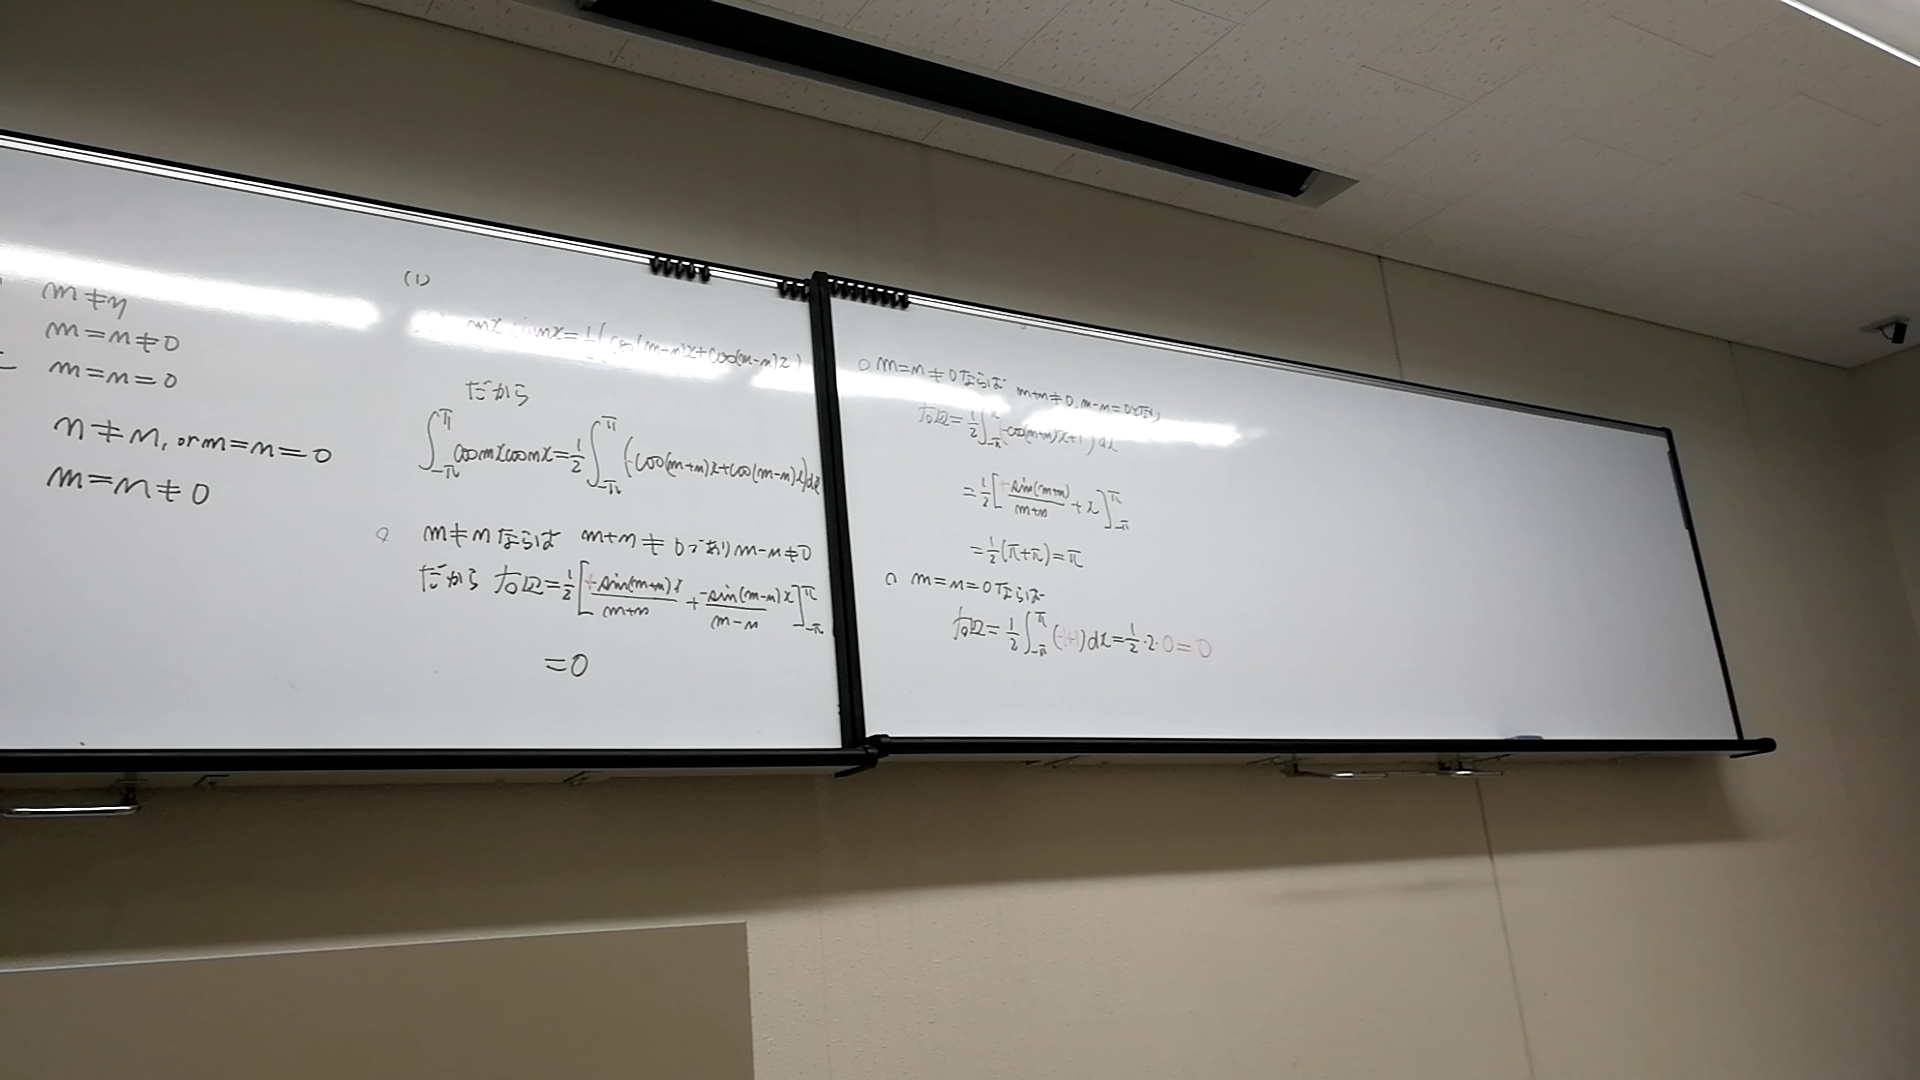 m≠n
m=n≠0
m=n=0
n≠n, or m=n=0
m=n≠0
(1)
mx nx=1/2(cos(m+n)x+cos(m-n)x)
だから
∫_{-π}^{π} cosmxcosnx=1/2∫_{-π}^{π}(-cos(m+n)x+cos(m-n)x)dx
○ m≠nならば m+n≠0であり m-n≠0
だから 右辺=1/2[+sin(m+n)x/(m+n) + -sin(m-n)x/(m-n)]_{-π}^{π}
=0
○ m=n≠0ならば m+n≠0, m-n=0
右辺=1/2∫_{-π}^{π}(-cos(m+n)x+1)dx
=1/2[+sin(m+n)/(m+n) + x]_{-π}^{π}
=1/2(π+π)=π
○ m=n=0ならば
右辺=1/2∫_{-π}^{π}(-1+1)dx=1/2·2·0=0